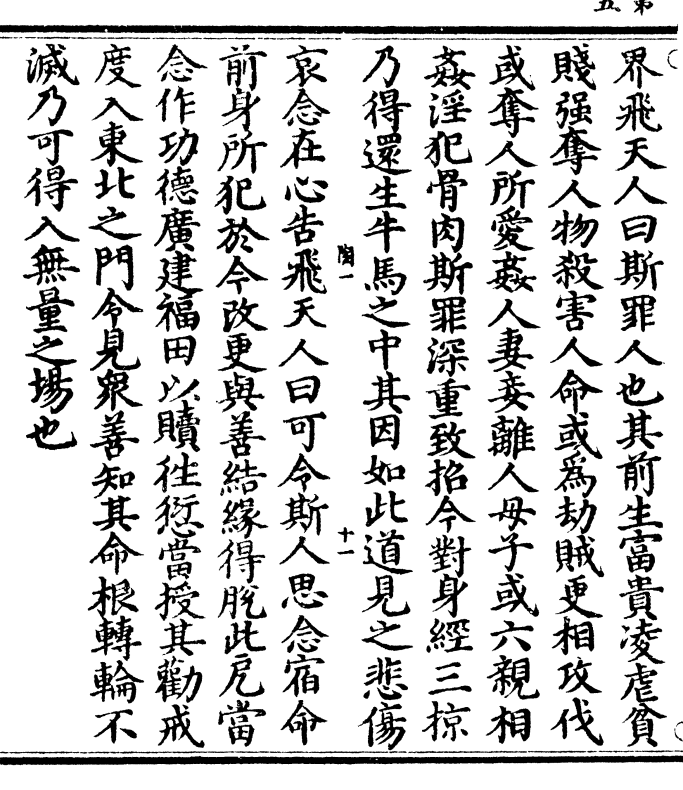 界飛天人曰斯罪人也其前生富貴凌虐貧
賤强奪人物殺害人命或爲劫賊更相攻伐
或奪人所愛姦人妻妾離人母子或六親相
姦淫犯骨肉斯罪深重致招今對身經三掠
乃得還生牛馬之中其因如此道見之悲傷
陶一 十一
哀念在心告飛天人曰可令斯人思念宿命
前身所犯於今改更與善結緣得脫此戹當
念作功德廣建福田以贖徃愆當授其勸戒
度入東北之門令見衆善知其命根轉輪不
滅乃可得入無量之場也